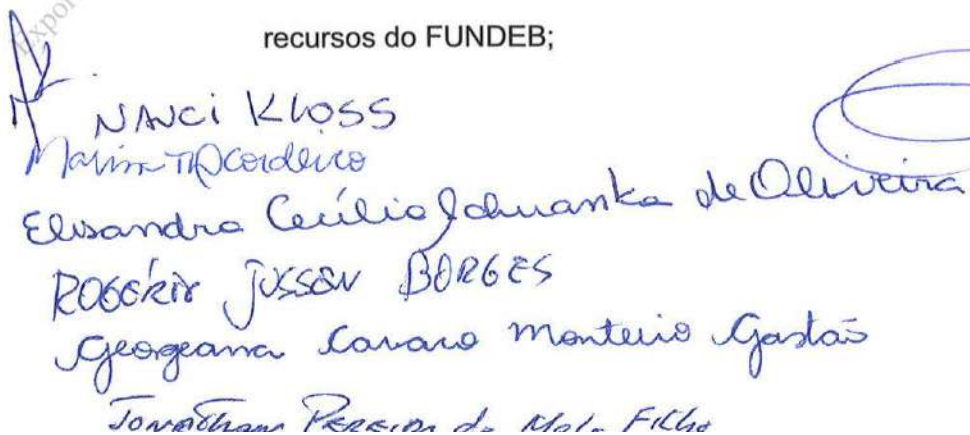 recursos do FUNDEB;
NANCI KLOSS
Cordeiro
Elisandra Cecília de Oliveira
ROGÉRIO JUSSEN BORGES
Georgeana Monteiro Gastão
Jonathan PEREIRA de Melo Filho